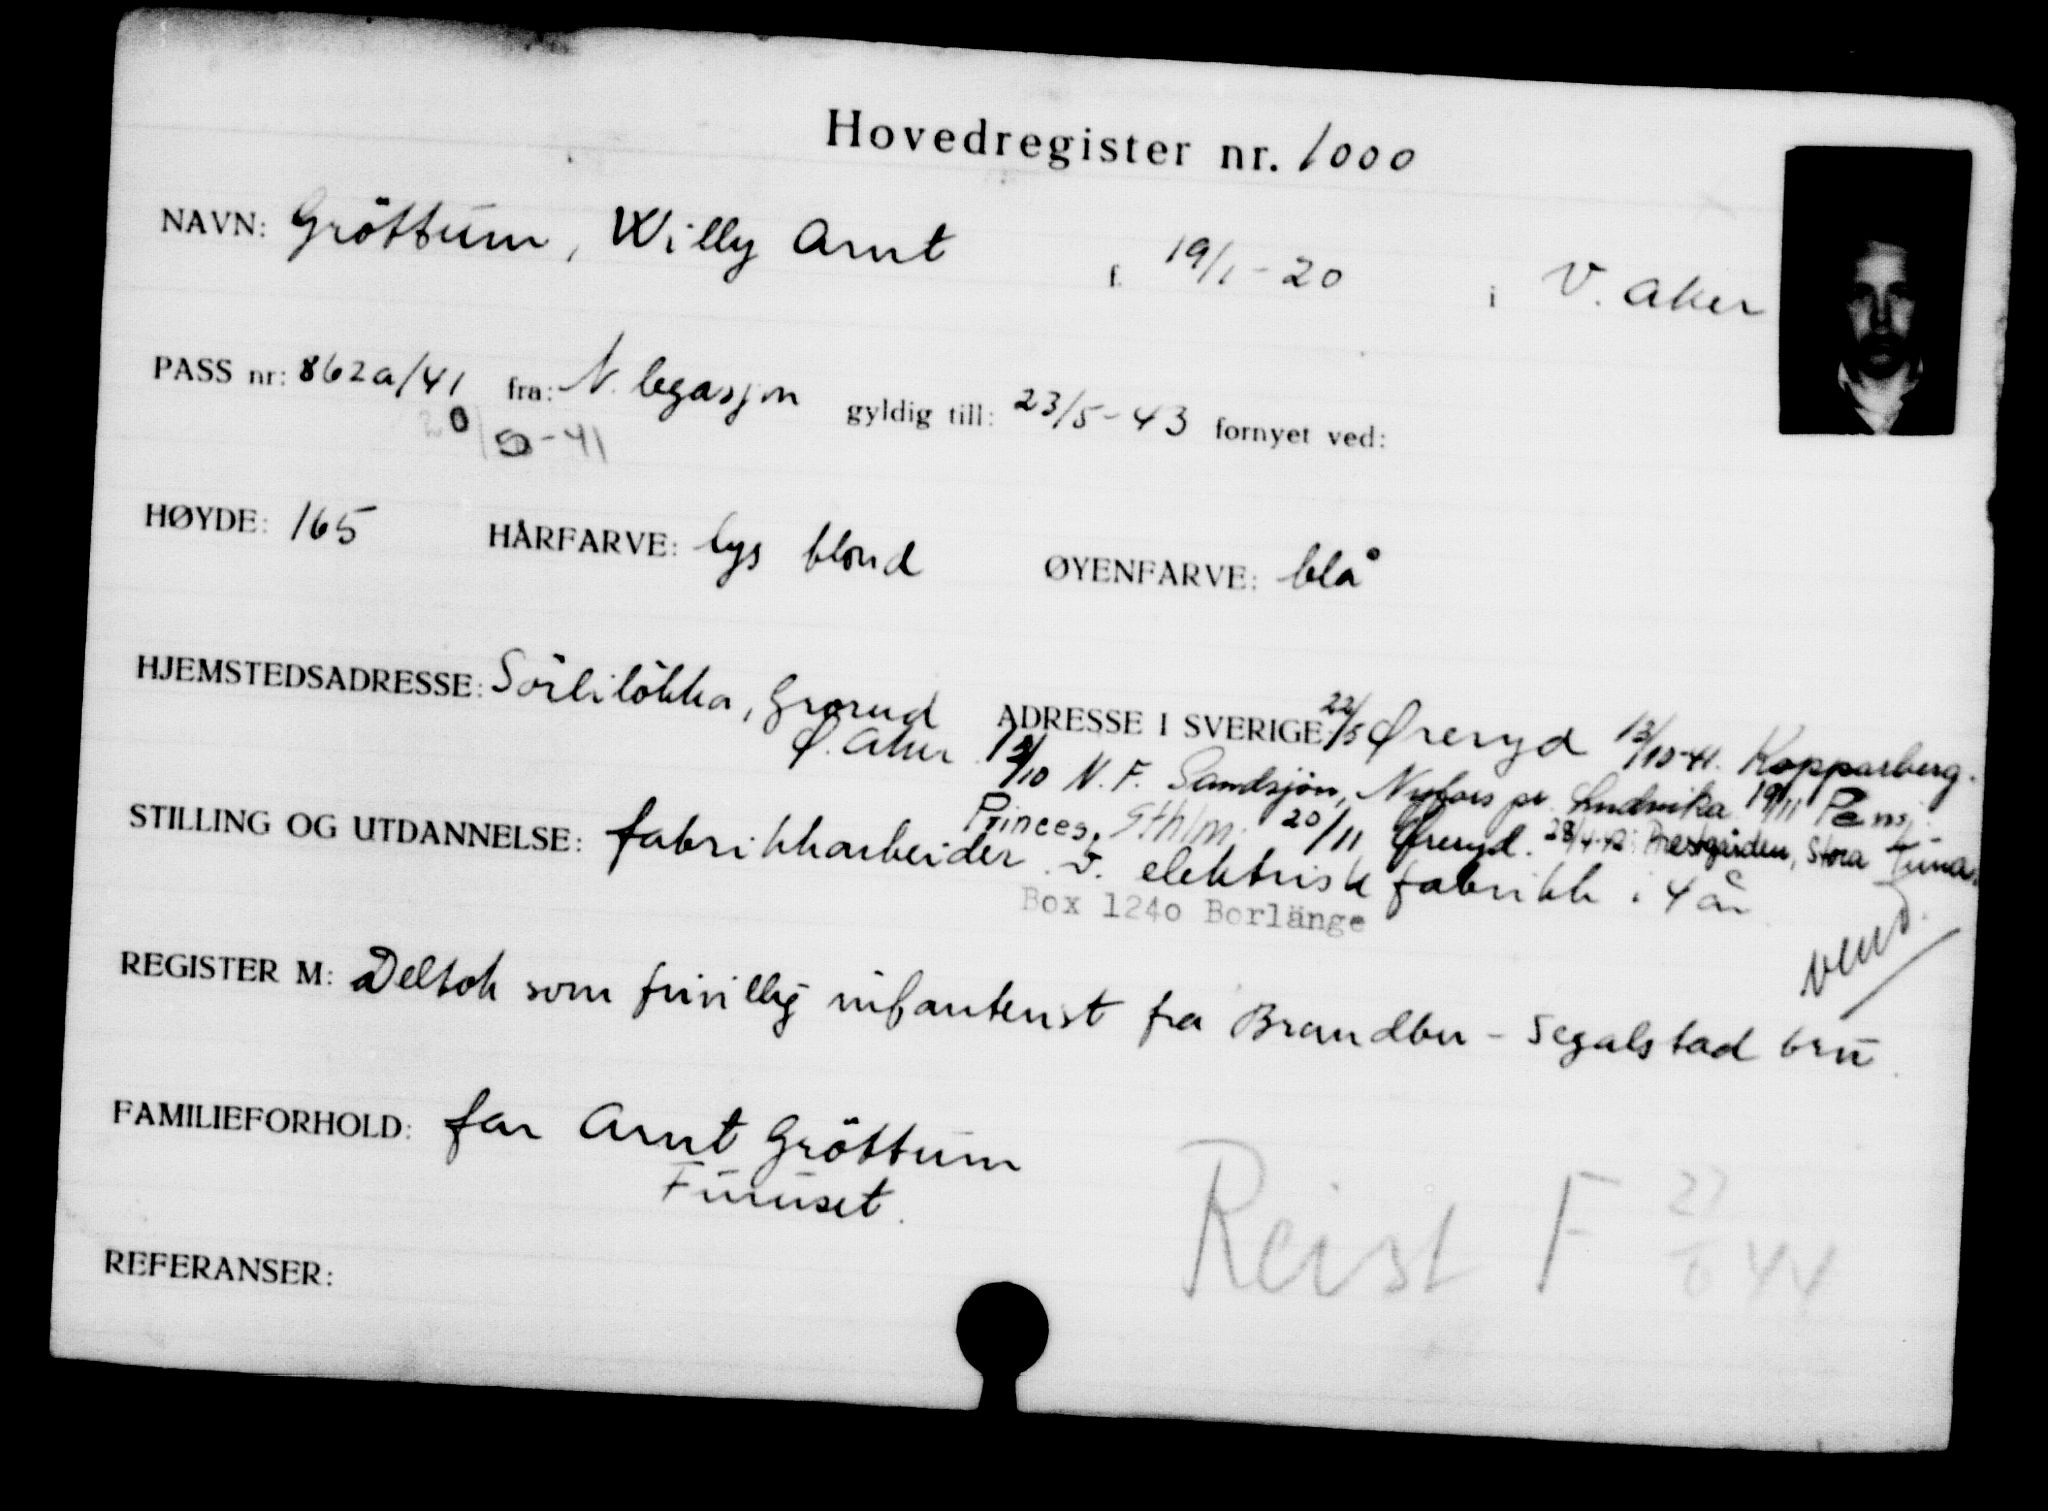 Hovedregister nr. 1000
NAVN: Gröttum, Willy Arnt f. 19/1-20 i V. Aker
PASS nr: 862a/41 fra: N. legasjon gyldig till: 23/5-43 fornyet ved:
20/5-41
HØYDE: 165 HÅRFARVE: lys blond ØYENFARVE: blå
HJEMSTEDSADRESSE: Sörlilökka, Grorud ADRESSE I SVERIGE: 22/5 Øreryd 13/10-41. Kopparberg.
Ø. Aker 13/10 N. F. Sandsjön, Nyfors pr. Ludvika 19/11 Pensj.
Princes, Sthlm. 20/11 Øreryd. 28/4-42: Prestgården, Stora Tuna.
STILLING OG UTDANNELSE: fabrikkarbeider v. elektrisk fabrikk i 4 år
Box 1240 Borlänge
vend.
REGISTER M: Deltok som frivillig infanterist fra Brandbu - Segalstad bru.
FAMILIEFORHOLD: far Arnt Gröttum
Furuset.
Reist F 27/6 44
REFERANSER: